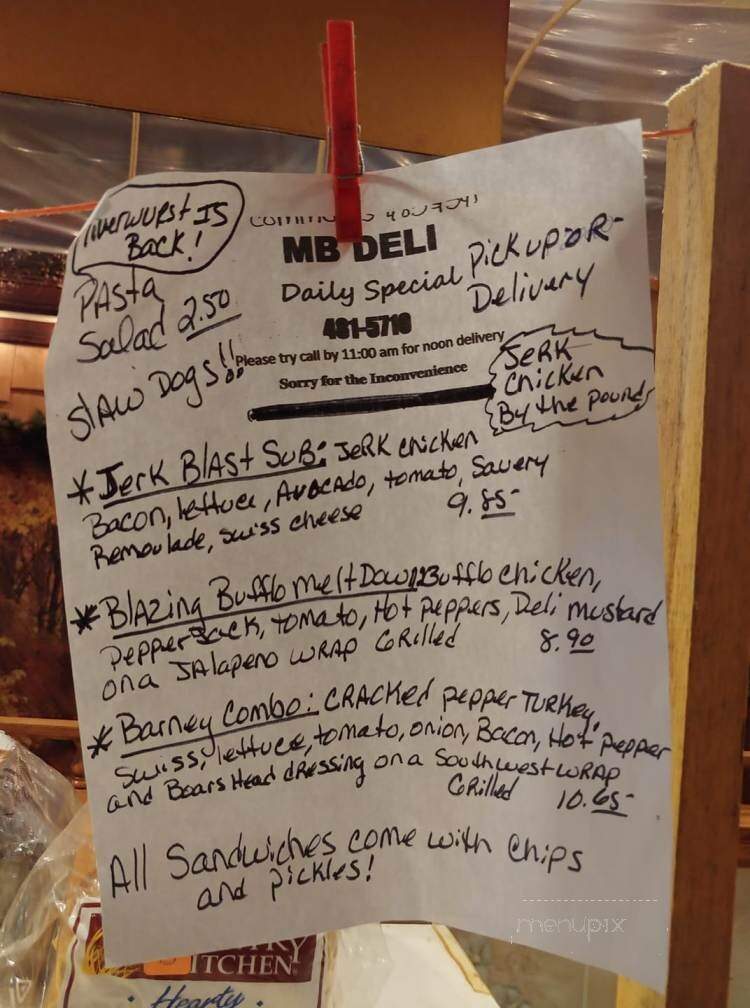 Liverwurst IS
BACK!
MB DELI
Daily Special
Pick up OR
Delivery
481-5710
Please try call by 11:00 am for noon delivery
Sorry for the Inconvenience
PAsta
Salad 2.50
SlAw Dogs!!
JeRK
Chicken
By the pound
* Jerk BlAst Sub: JeRK chicken
Bacon, lettuce, AvocAdo, tomato, Savery
Remoulade, swiss cheese 9.85
* BlAzing Bufflo meltDown: Bufflo chicken,
PepperJack, tomato, Hot peppers, Deli mustard
on a JAlapeno wRAp GRilled 8.90
* Barney Combo: CRACKed pepper TuRkey,
Swiss, lettuce, tomato, onion, Bacon, Hot pepper
and Boars Head dRessing on a Southwest wRAP
GRilled 10.65
All Sandwiches come with Chips
and pickles!
menupix
ITCHEN
Hearty